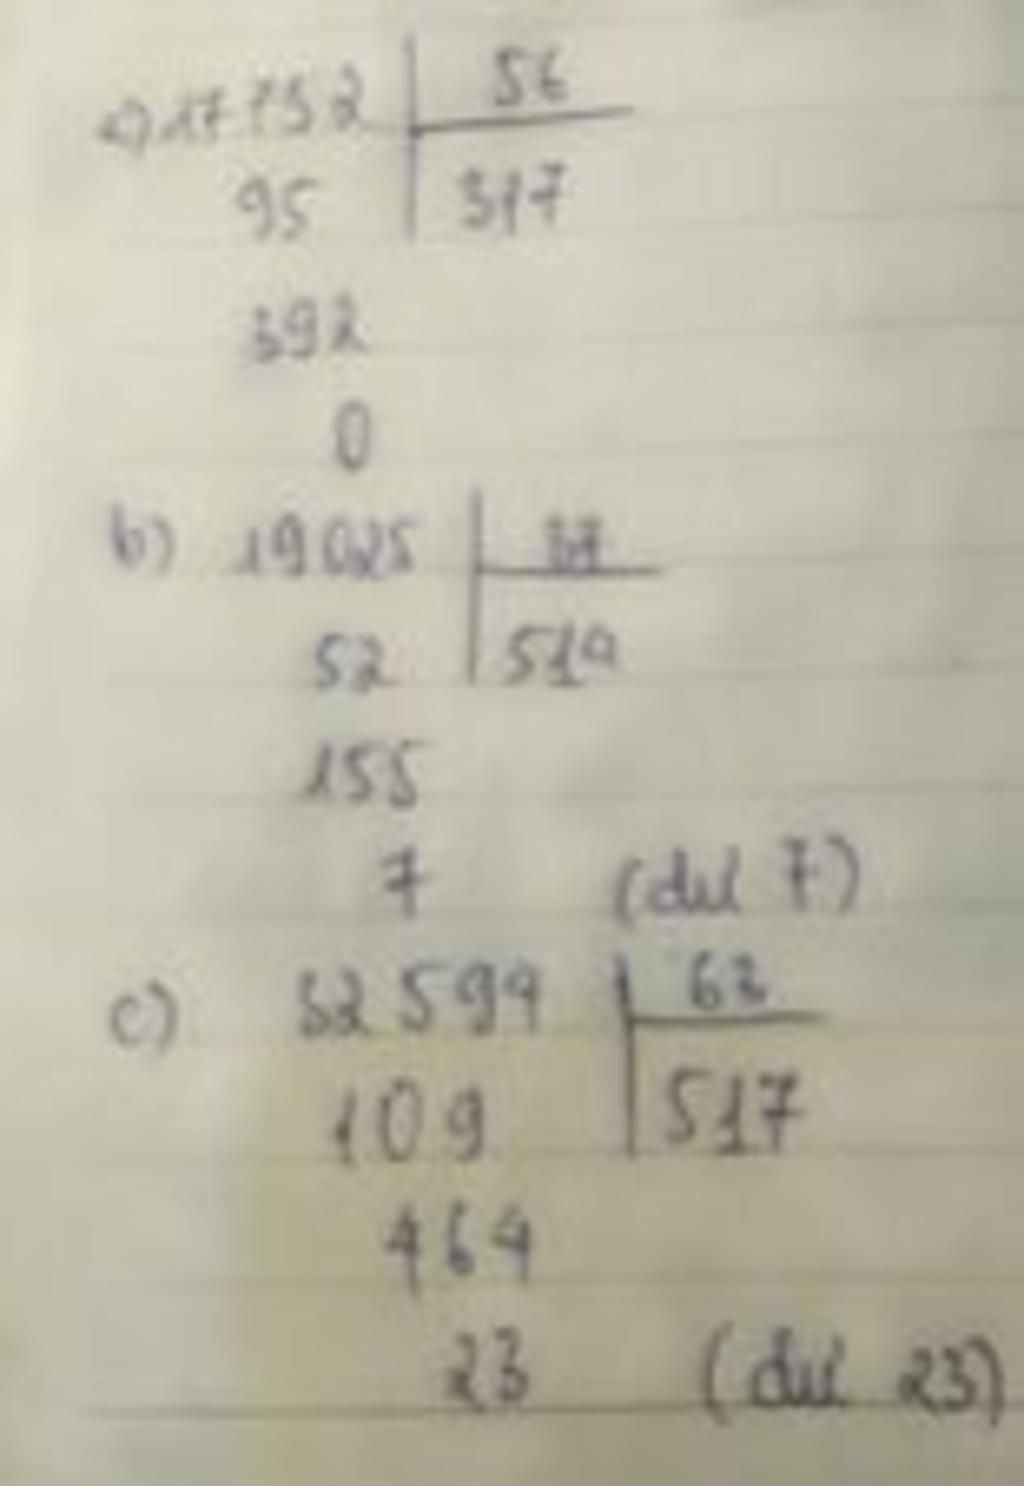 a) 17752 | 56
95 | 317
392
0
b) 19025 | 37
52 | 514
155
7 (dư 7)
c) 32 594 | 63
109 | 517
464
23 (dư 23)